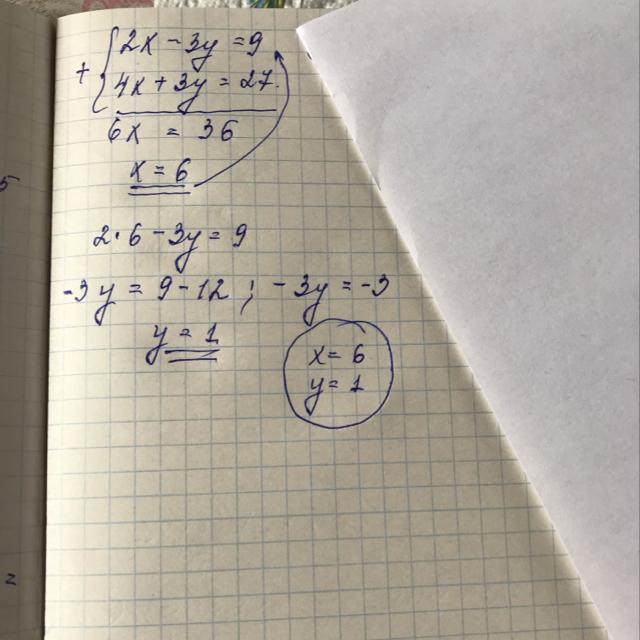 2x - 3y = 9
+ 4x + 3y = 27
6x = 36
x = 6
2·6 - 3y = 9
-3y = 9 - 12 ; -3y = -3
y = 1
x = 6
y = 1
5
=